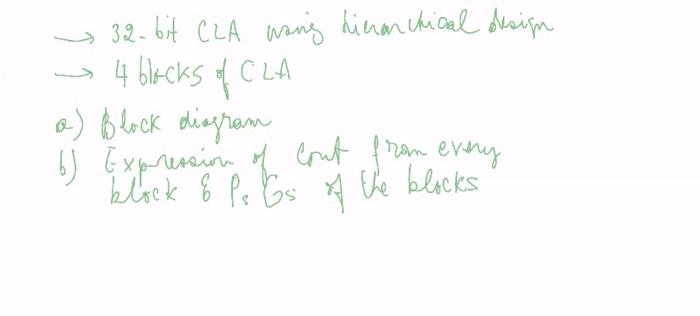 → 32-bit CLA using hierarchical design
→ 4 blocks of CLA
a) Block diagram
b) Expression of Cout from every
block & Ps Gs of the blocks